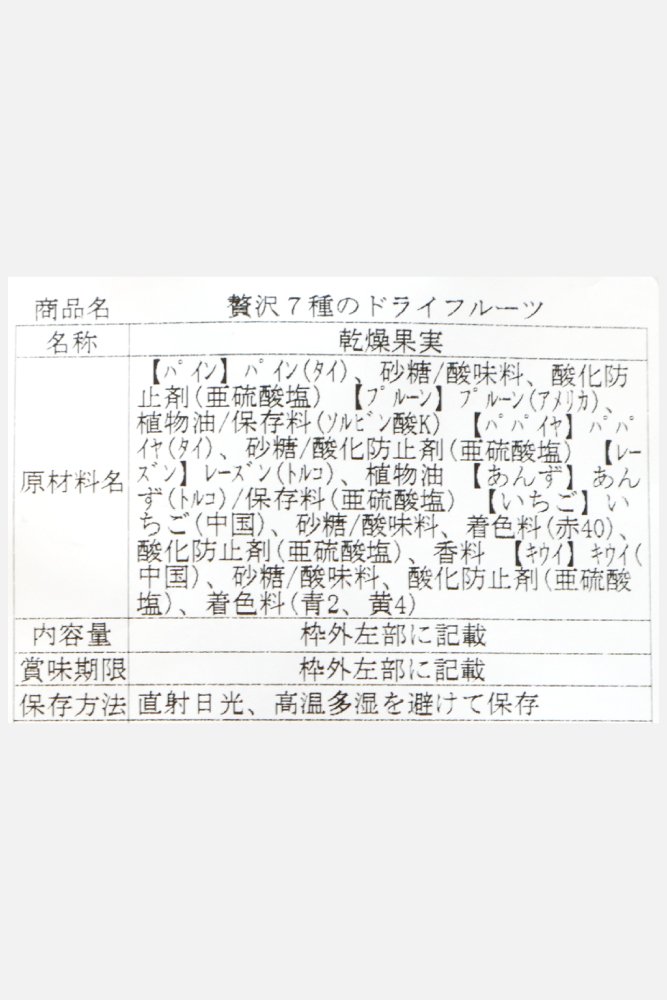 商品名 贅沢7種のドライフルーツ
名称 乾燥果実
原材料名
【ﾊﾟｲﾝ】ﾊﾟｲﾝ(ﾀｲ)、砂糖/酸味料、酸化防
止剤(亜硫酸塩) 【ﾌﾟﾙｰﾝ】ﾌﾟﾙｰﾝ(ｱﾒﾘｶ)、
植物油/保存料(ｿﾙﾋﾞﾝ酸K) 【ﾊﾟﾊﾟｲﾔ】ﾊﾟﾊﾟ
ｲﾔ(ﾀｲ)、砂糖/酸化防止剤(亜硫酸塩) 【ﾚｰ
ｽﾞﾝ】ﾚｰｽﾞﾝ(ﾄﾙｺ)、植物油 【あんず】あん
ず(ﾄﾙｺ)/保存料(亜硫酸塩) 【いちご】い
ちご(中国)、砂糖/酸味料、着色料(赤40)、
酸化防止剤(亜硫酸塩)、香料 【ｷｳｲ】ｷｳｲ(
中国)、砂糖/酸味料、酸化防止剤(亜硫酸
塩)、着色料(青2、黄4)
内容量 枠外左部に記載
賞味期限 枠外左部に記載
保存方法 直射日光、高温多湿を避けて保存